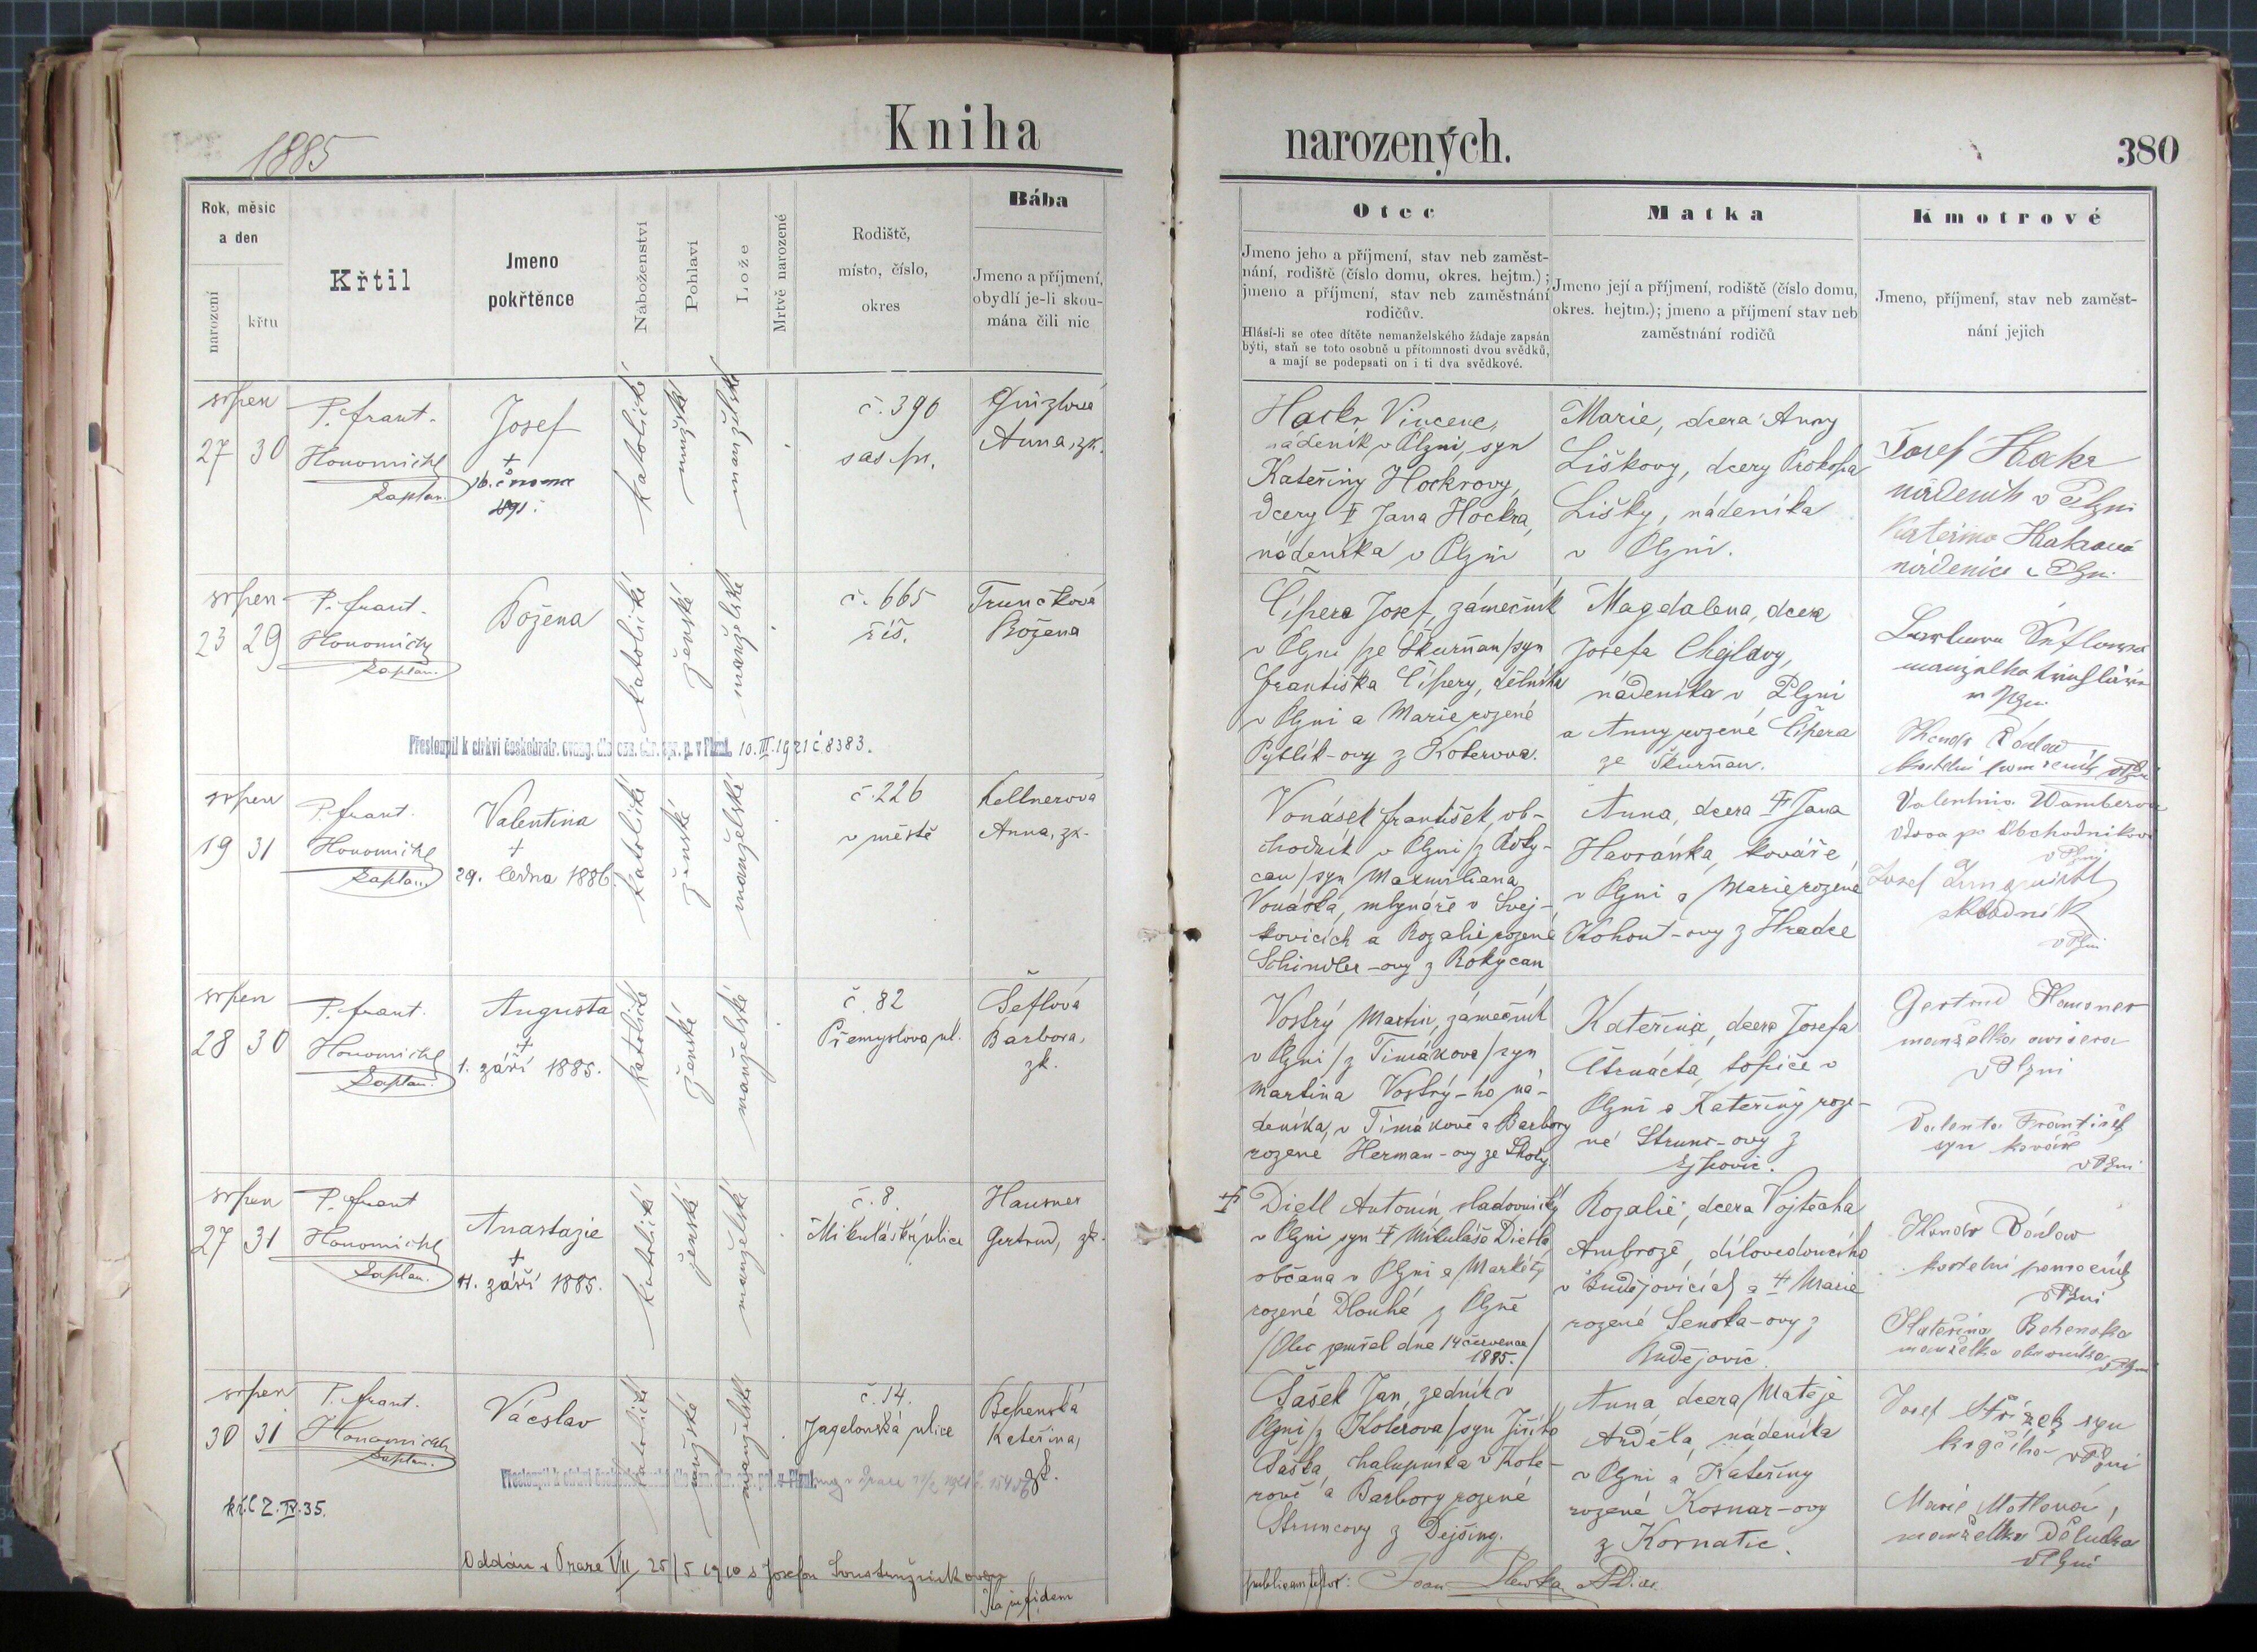 1885
Kniha
narozených.
380
Rok, měsíc
a den
narození
křtu
Křtil
Jmeno
pokřtěnce
Náboženství
Pohlaví
Lože
Mrtvě narozené
Rodiště,
místo, číslo,
okres
Bába
Jmeno a příjmení,
obydlí je-li skou-
mána čili nic
Otec
Jmeno jeho a příjmení, stav neb zaměst-
nání, rodiště (číslo domu, okres. hejtm.);
jmeno a příjmení, stav neb zaměstnání
rodičův.
Hlásí-li se otec dítěte nemanželského žádaje zapsán
býti, staň se toto osobně u přítomnosti dvou svědků,
a mají se podepsati on i ti dva svědkové.
Matka
Jmeno její a příjmení, rodiště (číslo domu,
okres. hejtm.); jmeno a příjmení stav neb
zaměstnání rodičů
Kmotrové
Jmeno, příjmení, stav neb zaměst-
nání jejich
srpen
27 30
P. Frant.
Honomichl
kaplan.
Josef
+
16. února
1891.
katolické
mužské
manželské
č. 396
sas. př.
Anna, zk.
Hockr Vincenc,
nádeník v Plzni, syn
Kateřiny Hockrovy,
dcery ┼ Jana Hockra,
nádeníka v Plzni
Marie, dcera Anny
Liškovy, dcery Prokopa
Lišky, nádeníka
v Plzni.
Josef Hakr
nádeník v Plzni
Kateřina Hakrová
nádenice v Plzni
srpen
23 29
P. Frant.
Honomichl
kaplan.
Božena
katolické
ženské
manželské
č. 665
říš.
Trunčková
Božena
Čípera Josef, zámečník
v Plzni /ze Škurňan/ syn
Františka Čípery, dělníka
v Plzni a Marie rozené
Pytlík-ovy z Koterova.
Magdalena, dcera
Josefa Chejlavy,
nádeníka v Plzni
a Anny rozené Čípera
ze Škurňan.
Barbora Šeflová
manželka
v Plzni
kostelní pomocník v Plzni
Přestoupil k církvi českobratr. evang. dle ozn. okr. spr. p. v Plzni. 10.III.1921 č. 8383.
srpen
19 31
P. Frant.
Honomichl
kaplan.
Valentina
+
29. ledna 1886.
katolické
ženské
manželské
č. 226
v městě
Kellnerova
Anna, zk.
Vonásek František, ob-
chodník v Plzni /z Roky-
can/ syn Maxmiliana
Vonáska, mlynáře v Svej-
kovicích a Rozalie rozené
Schindler-ovy z Rokycan
Anna, dcera ┼ Jana
Havránka, kováře
v Plzni a Marie rozené
Kohout-ovy z Hradce
Valentina Wamberová
vdova po obchodníkovi
v Plzni
Josef
skladník
v Plzni
srpen
28 30
P. Frant.
Honomichl
kaplan.
Augusta
+
1. září 1885.
katolické
ženské
manželské
č. 82
Přemyslova ul.
Šeflová
Barbora,
zk.
Vostrý Martin, zámečník
v Plzni /z Timákova/ syn
Martina Vostrý-ho ná-
deníka, v Timákově a Barbory
rozené Herman-ovy ze Školy.
Kateřina, dcera Josefa
Čtrnácta, topiče v
Plzni a Kateřiny roze-
né Strunc-ovy z
Ejpovic.
Gertrud Hausner
manželka
v Plzni
Valenta František
syn kováře
v Plzni
srpen
27 31
P. Frant
Honomichl
kaplan.
Anastazie
+
11. září 1885.
katolické
ženské
manželské
č. 8.
Mikulášská ulice
Hausner
Gertrud, zk.
┼ Dietl Antonín, sladovnický
v Plzni syn ┼ Mikuláše Dietla,
občana v Plzni a Markéty
rozené Dlouhé z Plzně
/Otec zemřel dne 14 července
1885./
Rozalie, dcera Vojtěcha
Ambrože, dílovedoucího
v Budějovicích a ┼ Marie
rozené Senska-ovy z
Budějovic.
kostelní pomocník
v Plzni
Kateřina Behenska
manželka
v Plzni
srpen
30 31
P. Frant.
Honomichl
kaplan.
Vácslav
katolické
mužské
manželské
č. 14.
Jagelonská ulice
Behenská
Kateřina,
zk.
Šašek Jan, zedník v
Plzni /z Koterova/ syn Jiřího
Šaška, chalupníka v Kote-
rově a Barbory rozené
Struncovy z Dejšiny.
Anna dcera Matěje
Anděla, nádeníka
v Plzni a Kateřiny
rozené Kosnar-ovy
z Kornatic.
Josef Střížek syn
krejčího v Plzni
Marie Motlová,
manželka dělníka
v Plzni
kř.l. 2.IV.35.
Oddán v Praze VII 25/5 1910 s Josefou